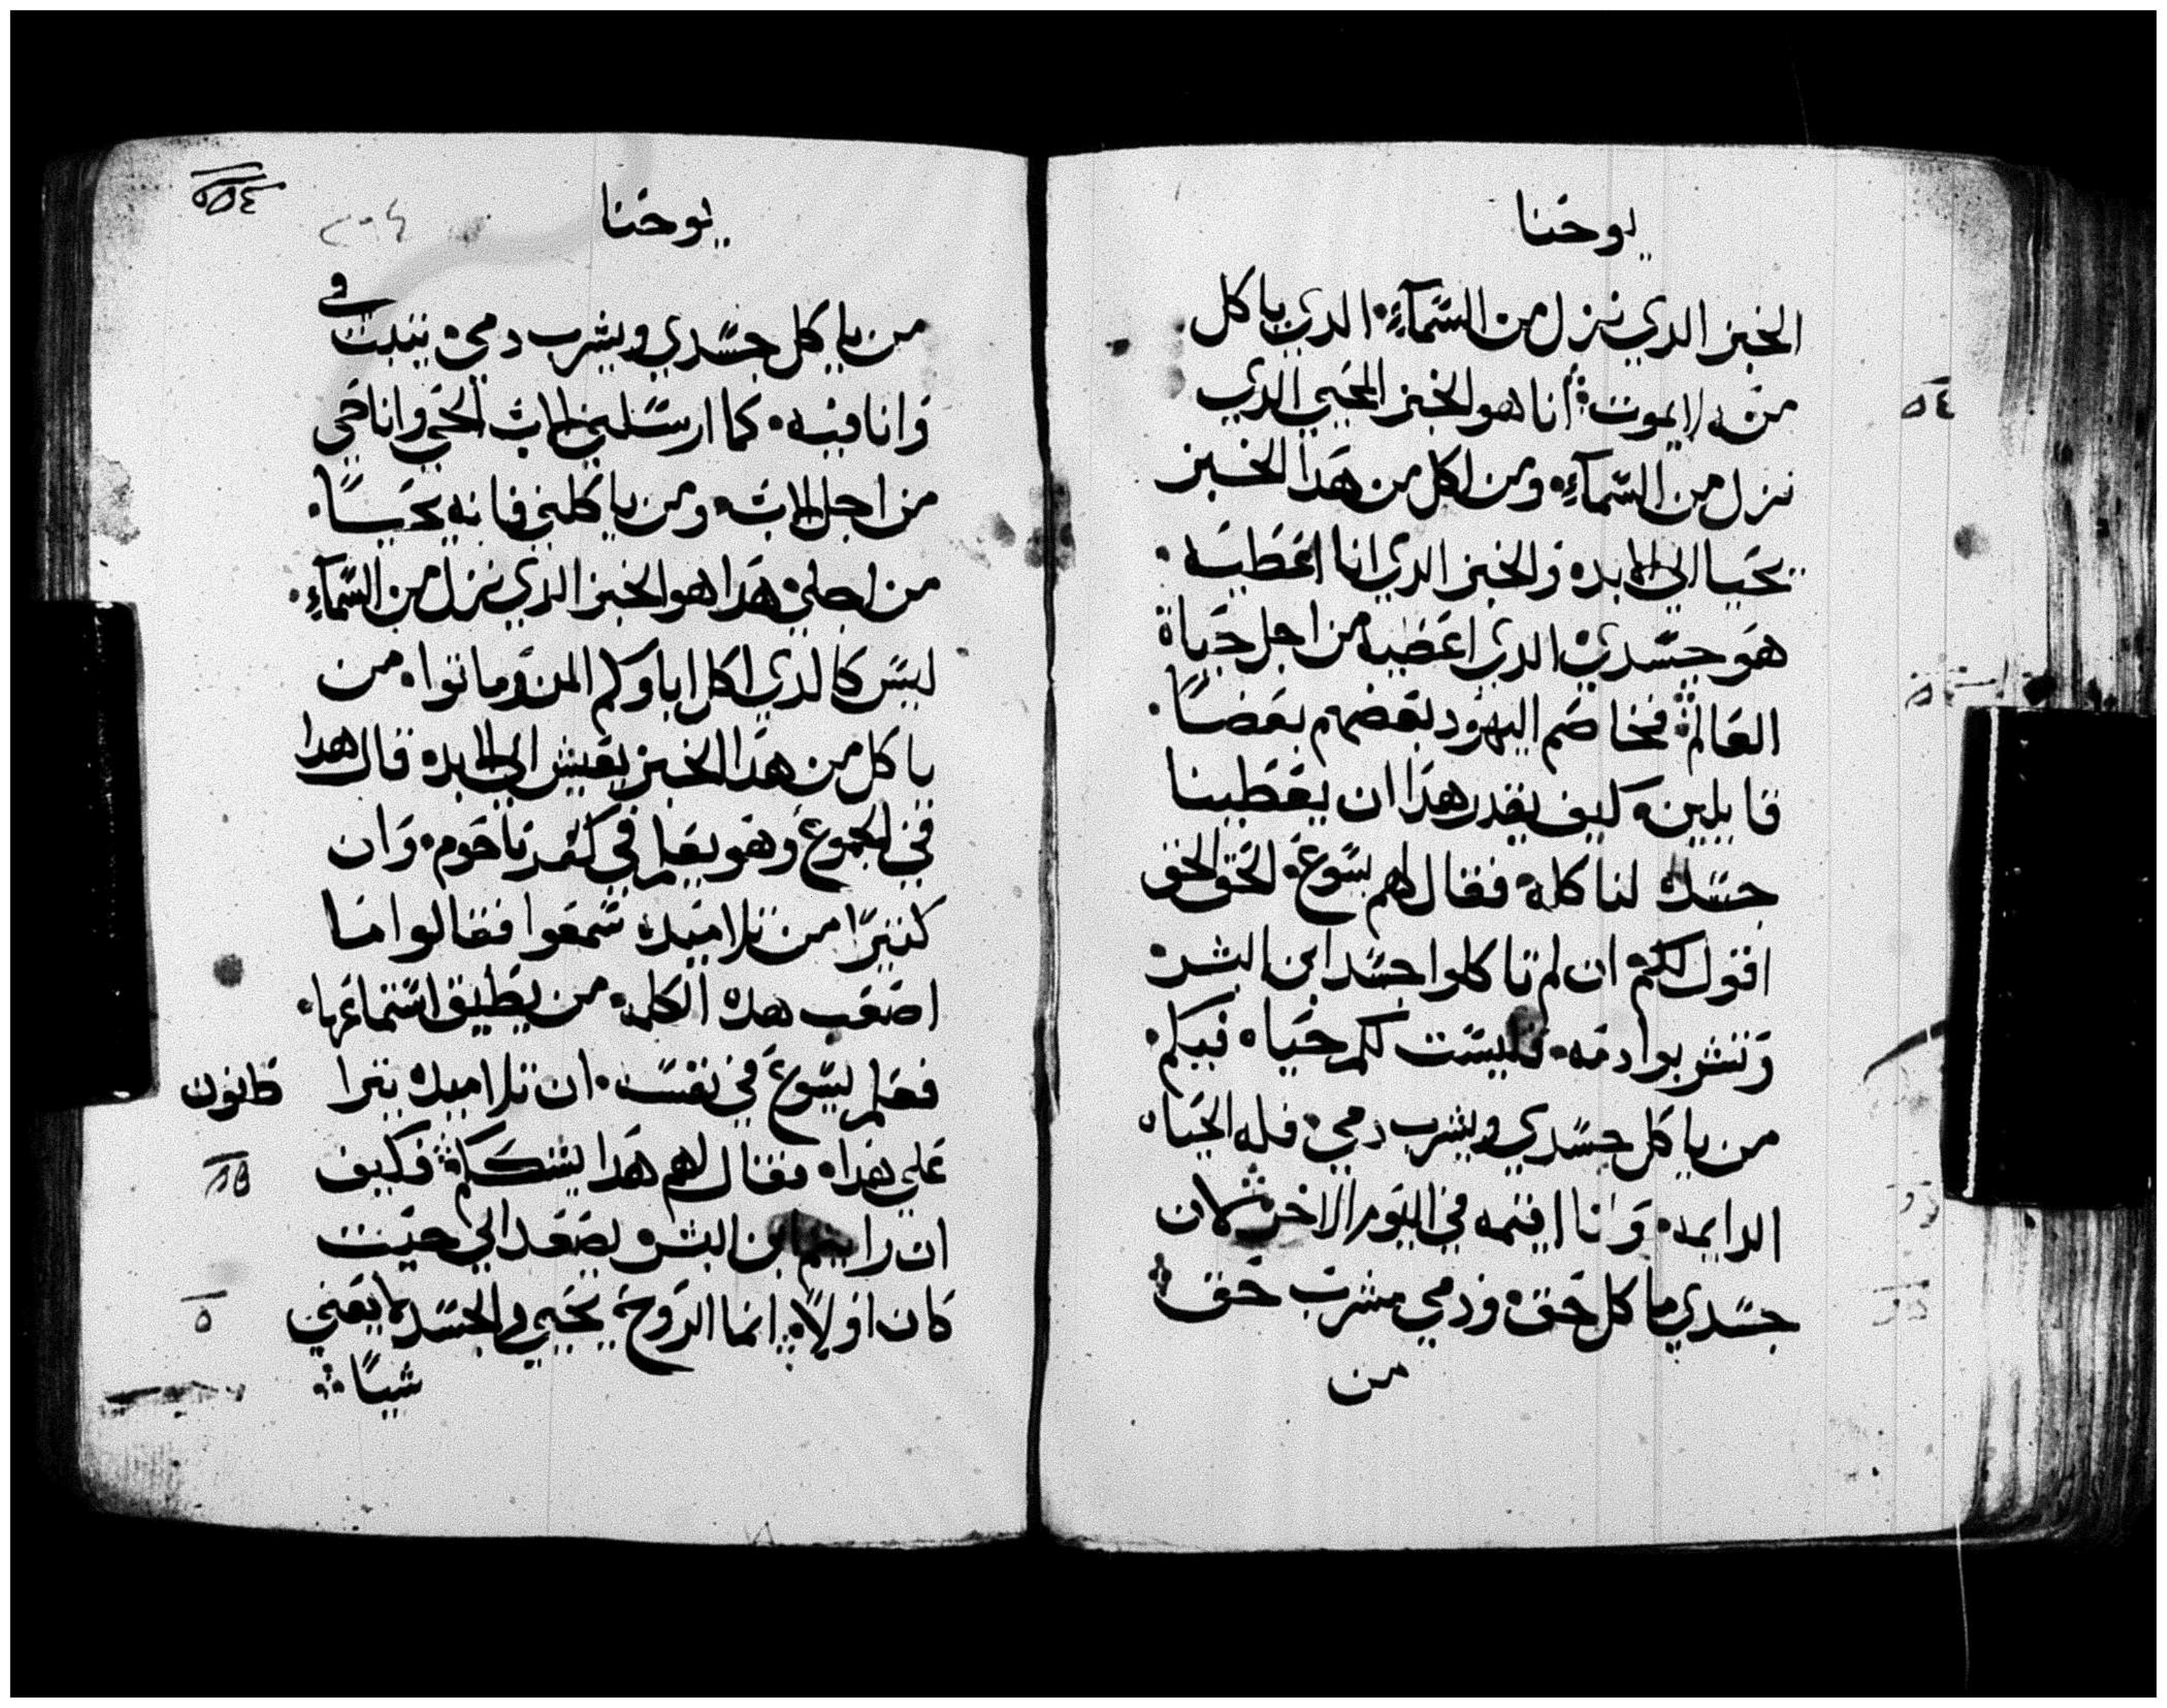 يوحنا
الخبز الدي نزل من السمآءِ. الدي ياكل
منه لا يموت. أنا هو الخبز المحيي الدي
نزل من السمآءِ. ومن اكل من هدا الخبز
يحيا الي الابد. والخبز الدي انا اعطيه.
هو جسدي الدي اعطيه من اجل حياة
العالم. فخاصم اليهود بعضهم بعضًا.
قايلين. كيف يقدر هدا ان يعطينا
جسده لناكله. فقال لهم يسوع. الحق الحق
اقول لكم. ان لم تاكلوا جسد ابن البشر.
وتشربوا دمه. فليست لكم حياه فيكم.
من ياكل جسدي ويشرب دمي. فله الحياه
الدايمه. وانا اقيمه في اليوم الاخر. لان
جسدي ماكل حق. ودمي مشرب حق
من
٥٤
يوحنا
من ياكل جسدي ويشرب دمي. يثبت في
وانا فيه. كما ارسلني الاب الحي وانا حي
من اجل الاب. ومن ياكلني فانه يحيا.
من اجلي. هدا هو الخبز الدي نزل من السمآءِ.
ليس كالدي اكل اباوكم المن وماتوا. من
ياكل من هدا الخبز يعيش الي الابد. قال هدا
في المجموع وهو يعلم في كفرناحوم. وان
كثيرًا من تلاميده سمعوا فقالوا ما
اصعب هده الكلمه. من يطيق استماعها.
فعلم يسوع في نفسه. ان تلاميده يترا
علي هدا. فقال لهم هدا يشككم. فكيف
ان رايتم ابن البشر يصعد الي حيت
كان اولًا. انما الروح يحيي والجسد لا يغني
شيًا
كانون